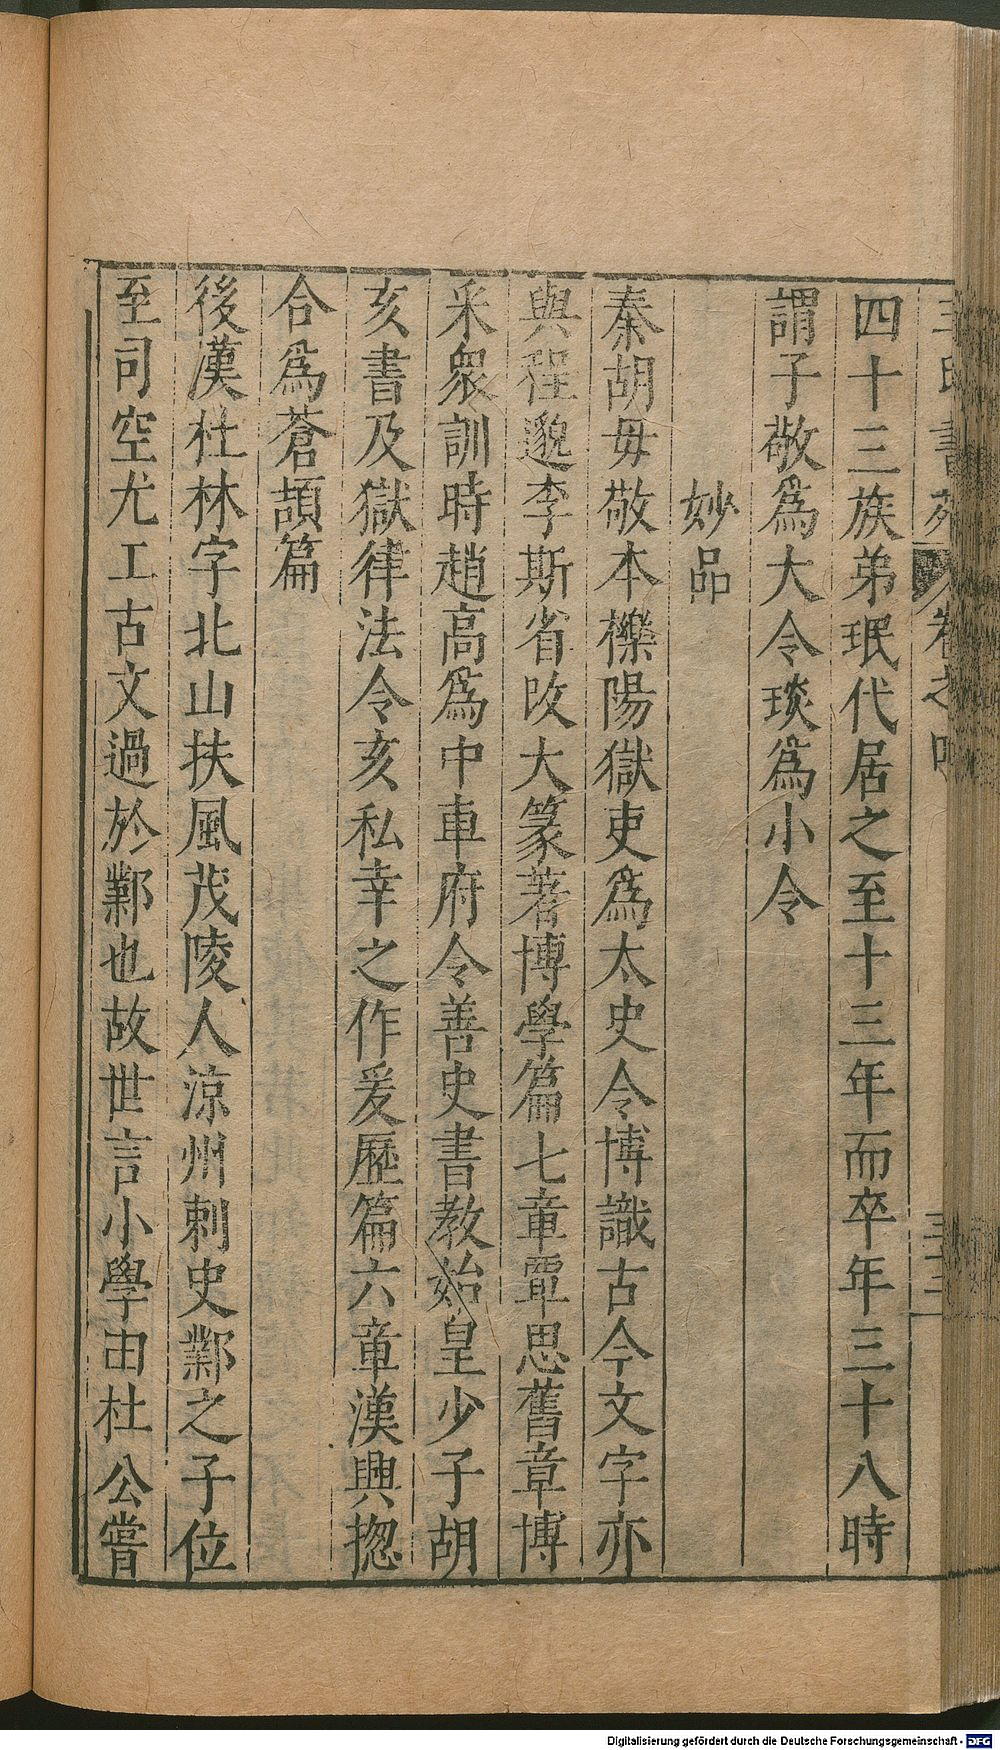 王氏書苑 卷之四 三十三
四十三族弟珉代居之至十三年而卒年三十八時
謂子敬爲大令琰爲小令
妙品
秦胡毋敬本櫟陽獄吏爲太史令博識古今文字亦
與程邈李斯省改大篆著博學篇七章覃思舊章博
采衆訓時趙高爲中車府令善史書教始皇少子胡
亥書及獄律法令亥私幸之作爰歷篇六章漢興揔
合爲蒼頡篇
後漢杜林字北山扶風茂陵人涼州刺史鄴之子位
至司空尤工古文過於鄴也故世言小學由杜公嘗
Digitalisierung gefördert durch die Deutsche Forschungsgemeinschaft - DFG